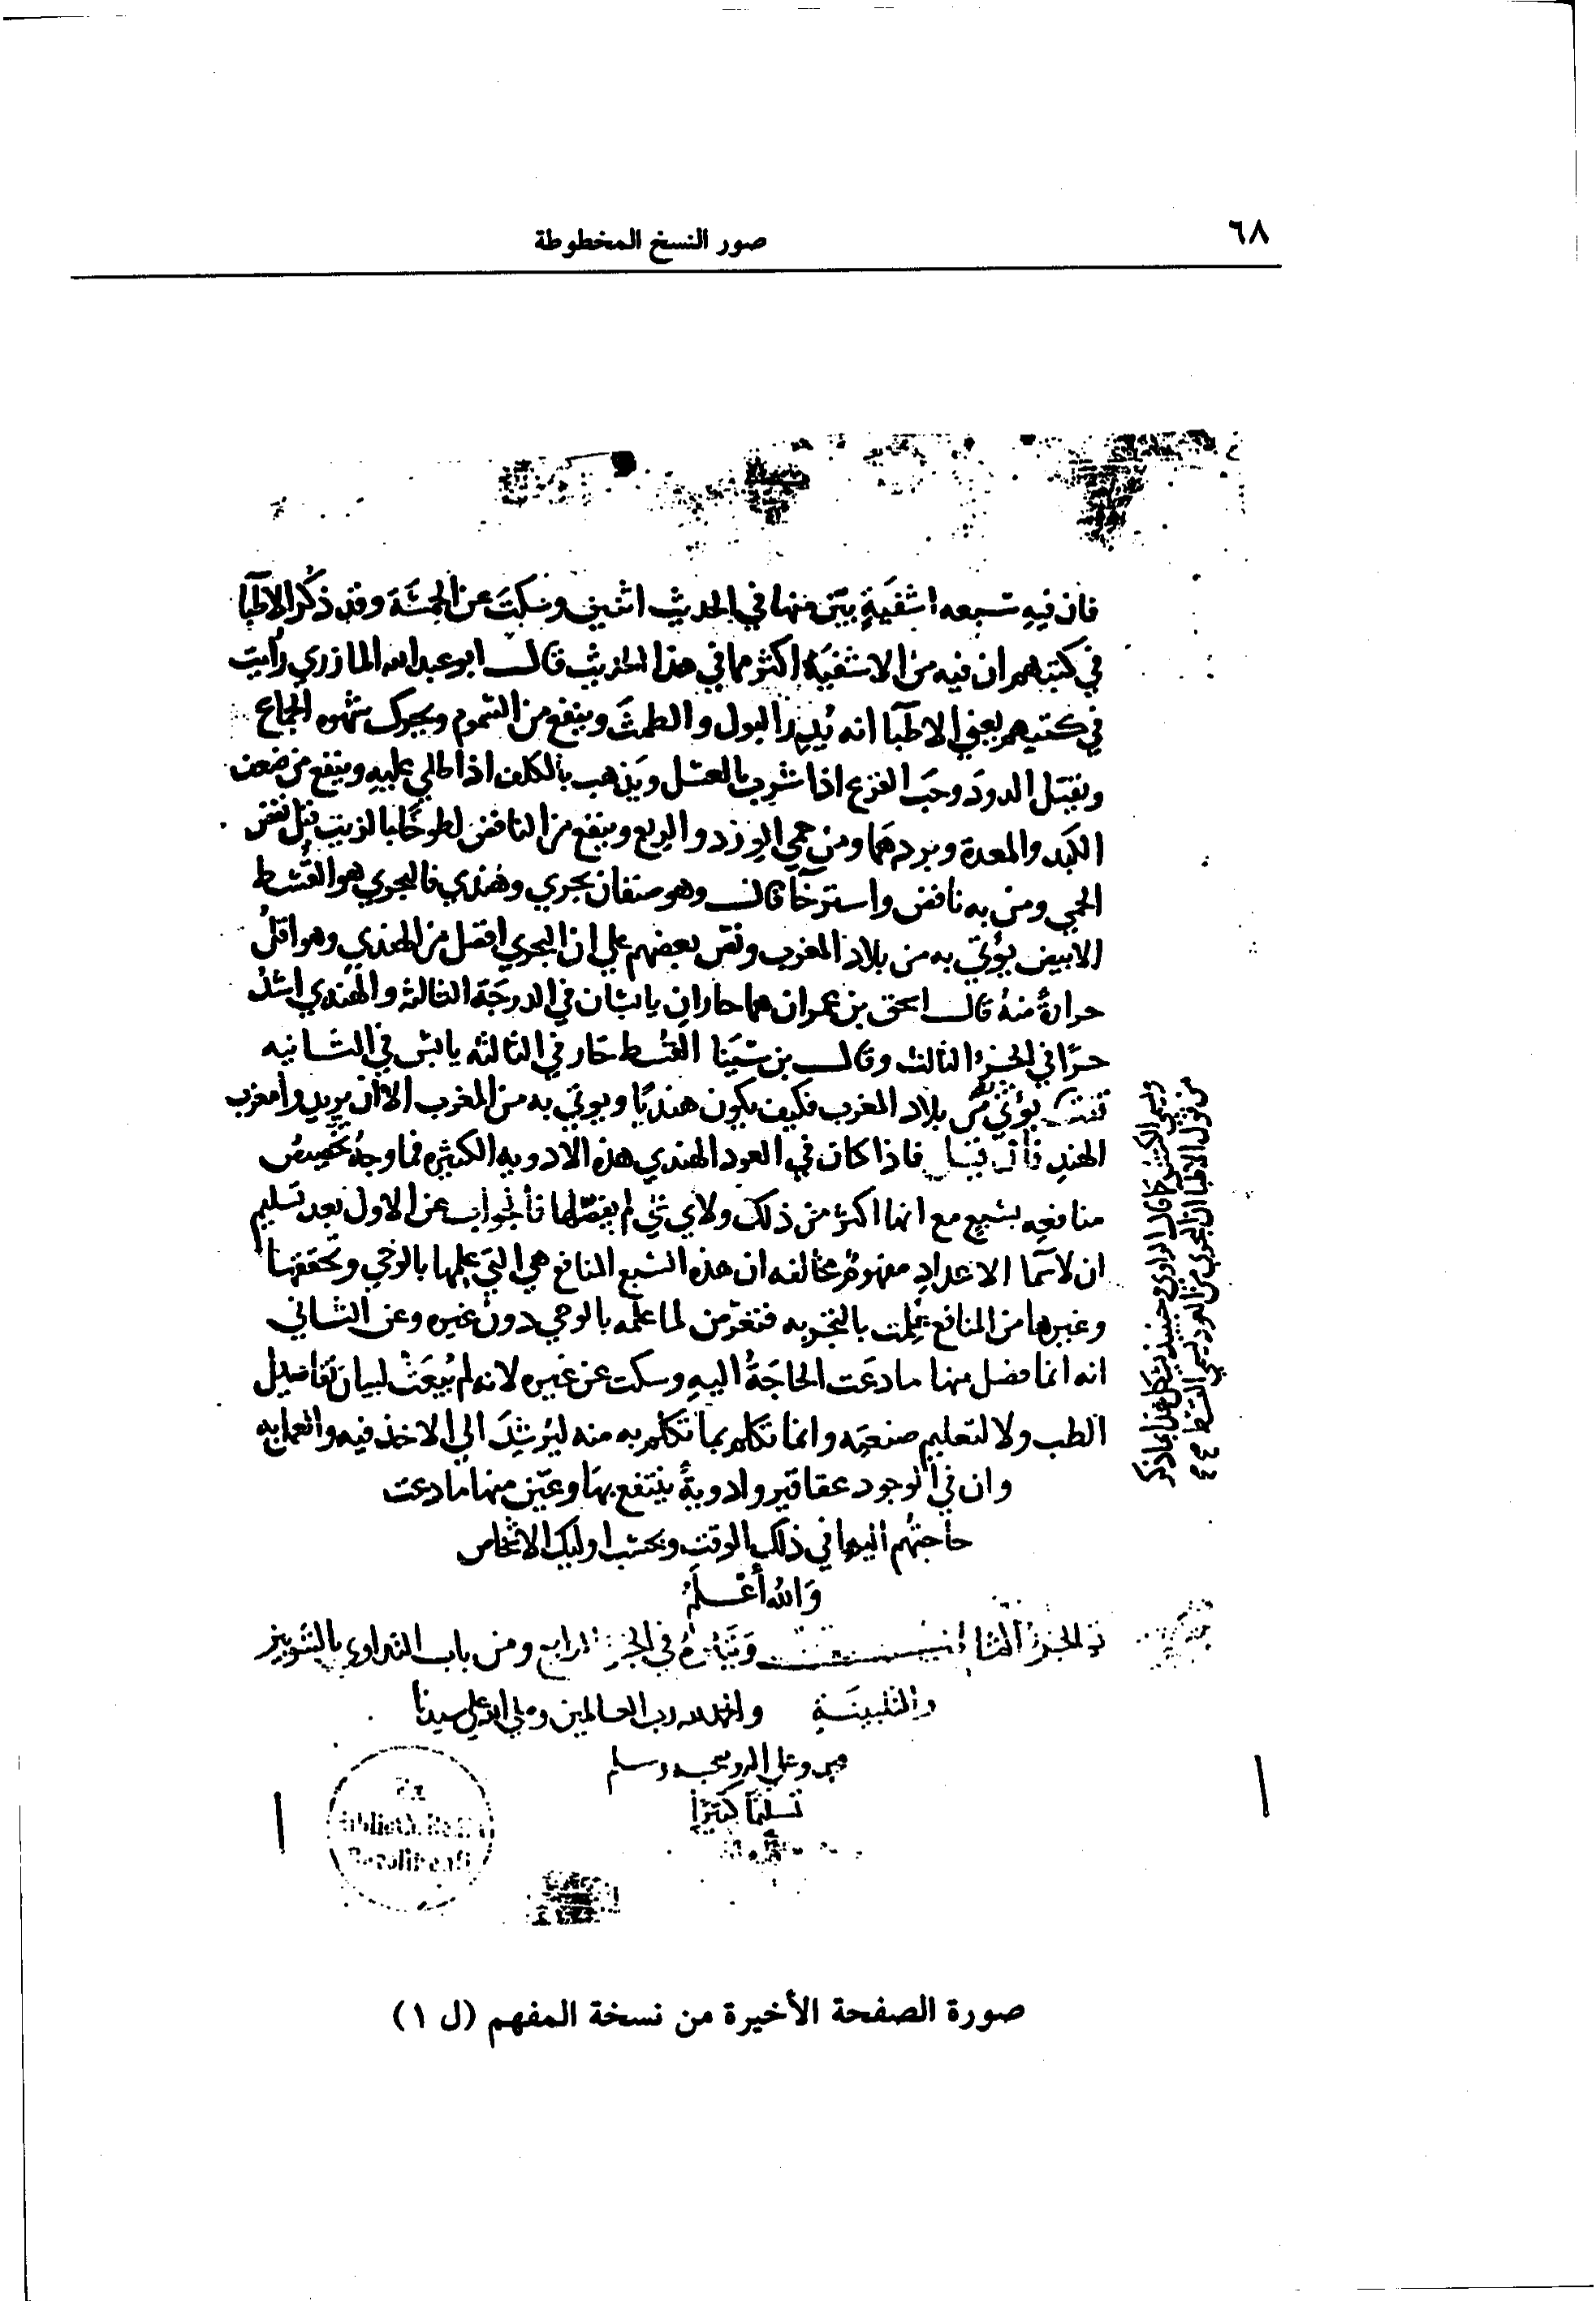 ٦٨
صور النسخ المخطوطة
فان فيه سبعه اشفيةٍ بيّن منها في الحديث اثنين وسكتَ عن الخمسَة وقد ذكر الاطبآ
في كتبهم ان فيه من الاشفيَة اكثر مما في هذا الحديث قال ابو عبد الله المازري رأيت
في كتبهم يعني الاطبآ انه يُدِرُّ البول والطمثَ وينفع من السّموم ويحرك شهوه الجماع
ويقتل الدودَ وحبَ القرع اذا شُرِب بالعسَل ويَذهب بالكلف اذا طلي عليه وينفع من ضعف
الكبَد والمعدة وبردهمَا ومن حمي الوِرْد والرِبع وينفع من النافض لطوخًا بالزيت قبل نفض
الحمي ومن به نافض واسترخآ قال وهو صنفان بحري وهندي فالبحري هو القُسْط
الابيض يؤتي به من بلاد المغرب ونصّ بعضهم علي ان البحري افضل من الهندي وهو اقلُ
حرارةً منهُ قال اسحق بن عمران هما حارانِ يابسَان في الدرجَة الثالثه والهندي اشدُ
حرًا في الجزء الثالث وقال بن سيَنا القُسْط حَار في الثالثه يابسٌ في الثانيه
يؤتي به من بلاد المغرب فكيف يكون هنديًا ويوتي به من المغرب الا ان يريدوا مغرب
الهندِ فأن قيل فاذا كان في العود الهندي هذه الادويه الكثيره فما وجهُ تخصيصُ
منافعِه بسَبعٍ مع انها اكثر من ذلك ولاي شي لم يفصّلها فألجواب عن الاول بعد تسليم
ان لاسَما الاعدادِ مفهوم مخالفه ان هذه السّبع المنافع هي التي عِلِمها بالوحي وتحققها
وغيرها من المنافع عُلِمَت بالتجربه فتعَرّض لما علمَه بالوحي دون غيره وعن الثاني
انه انما فصل منها ما دعَت الحَاجَةُ اليهِ وسكت عن غيره لانه لم يُبعَثْ لبيان تفَاصيل
الطب ولا لتعليم صنعتِه وانما تكلم بما تكلم به منه ليُرشِدَ الي الاخذ فيه والعمل به
وان في الوجود عقاقير وادويةً ينتفع بهَا وعيّن منها ما دعت
حاجتهُم اليها في ذلك الوقت وبحسَب اوليك الاشخاص
وَاللهُ أعْلَمُ
في الجزء الرابع ومن باب التداوي بالشونيز
والتلبينَةِ والحمد لله رب العالمين وصلي الله علي سيدنا
محمد وعلي اله وصحبه وسلم
تسليمًا كثيرًا
صورة الصفحة الأخيرة من نسخة المفهم (ل ١)